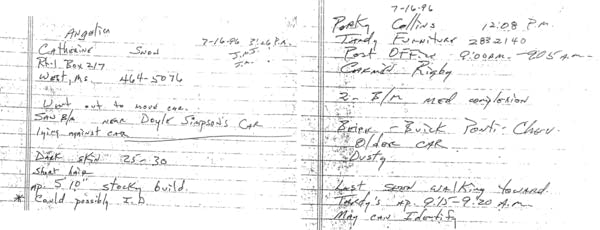 Angelica
Catherine Snow
7-16-96 3:26 P.M.
Rt.1. Box 217
West, Ms. 464-5076
Went out to move car.
Saw B/M near Doyle Simpson's Car
against car
Dark skin 25-30
short hair
ap. 5'10" stocky build.
* Could possibly I.D.
7-16-96
Porky Collins 12:08 P.M.
Tardy Furniture 2832140
Post Office 9:00 A.M. - 905 A.M.
Carmen Rigby
2- B/M med complexion
Buick Ponti- Chev.
Older car
Dusty
Last seen walking toward
Tardy's ap. 9:15-9:20 A.M.
May can Identify